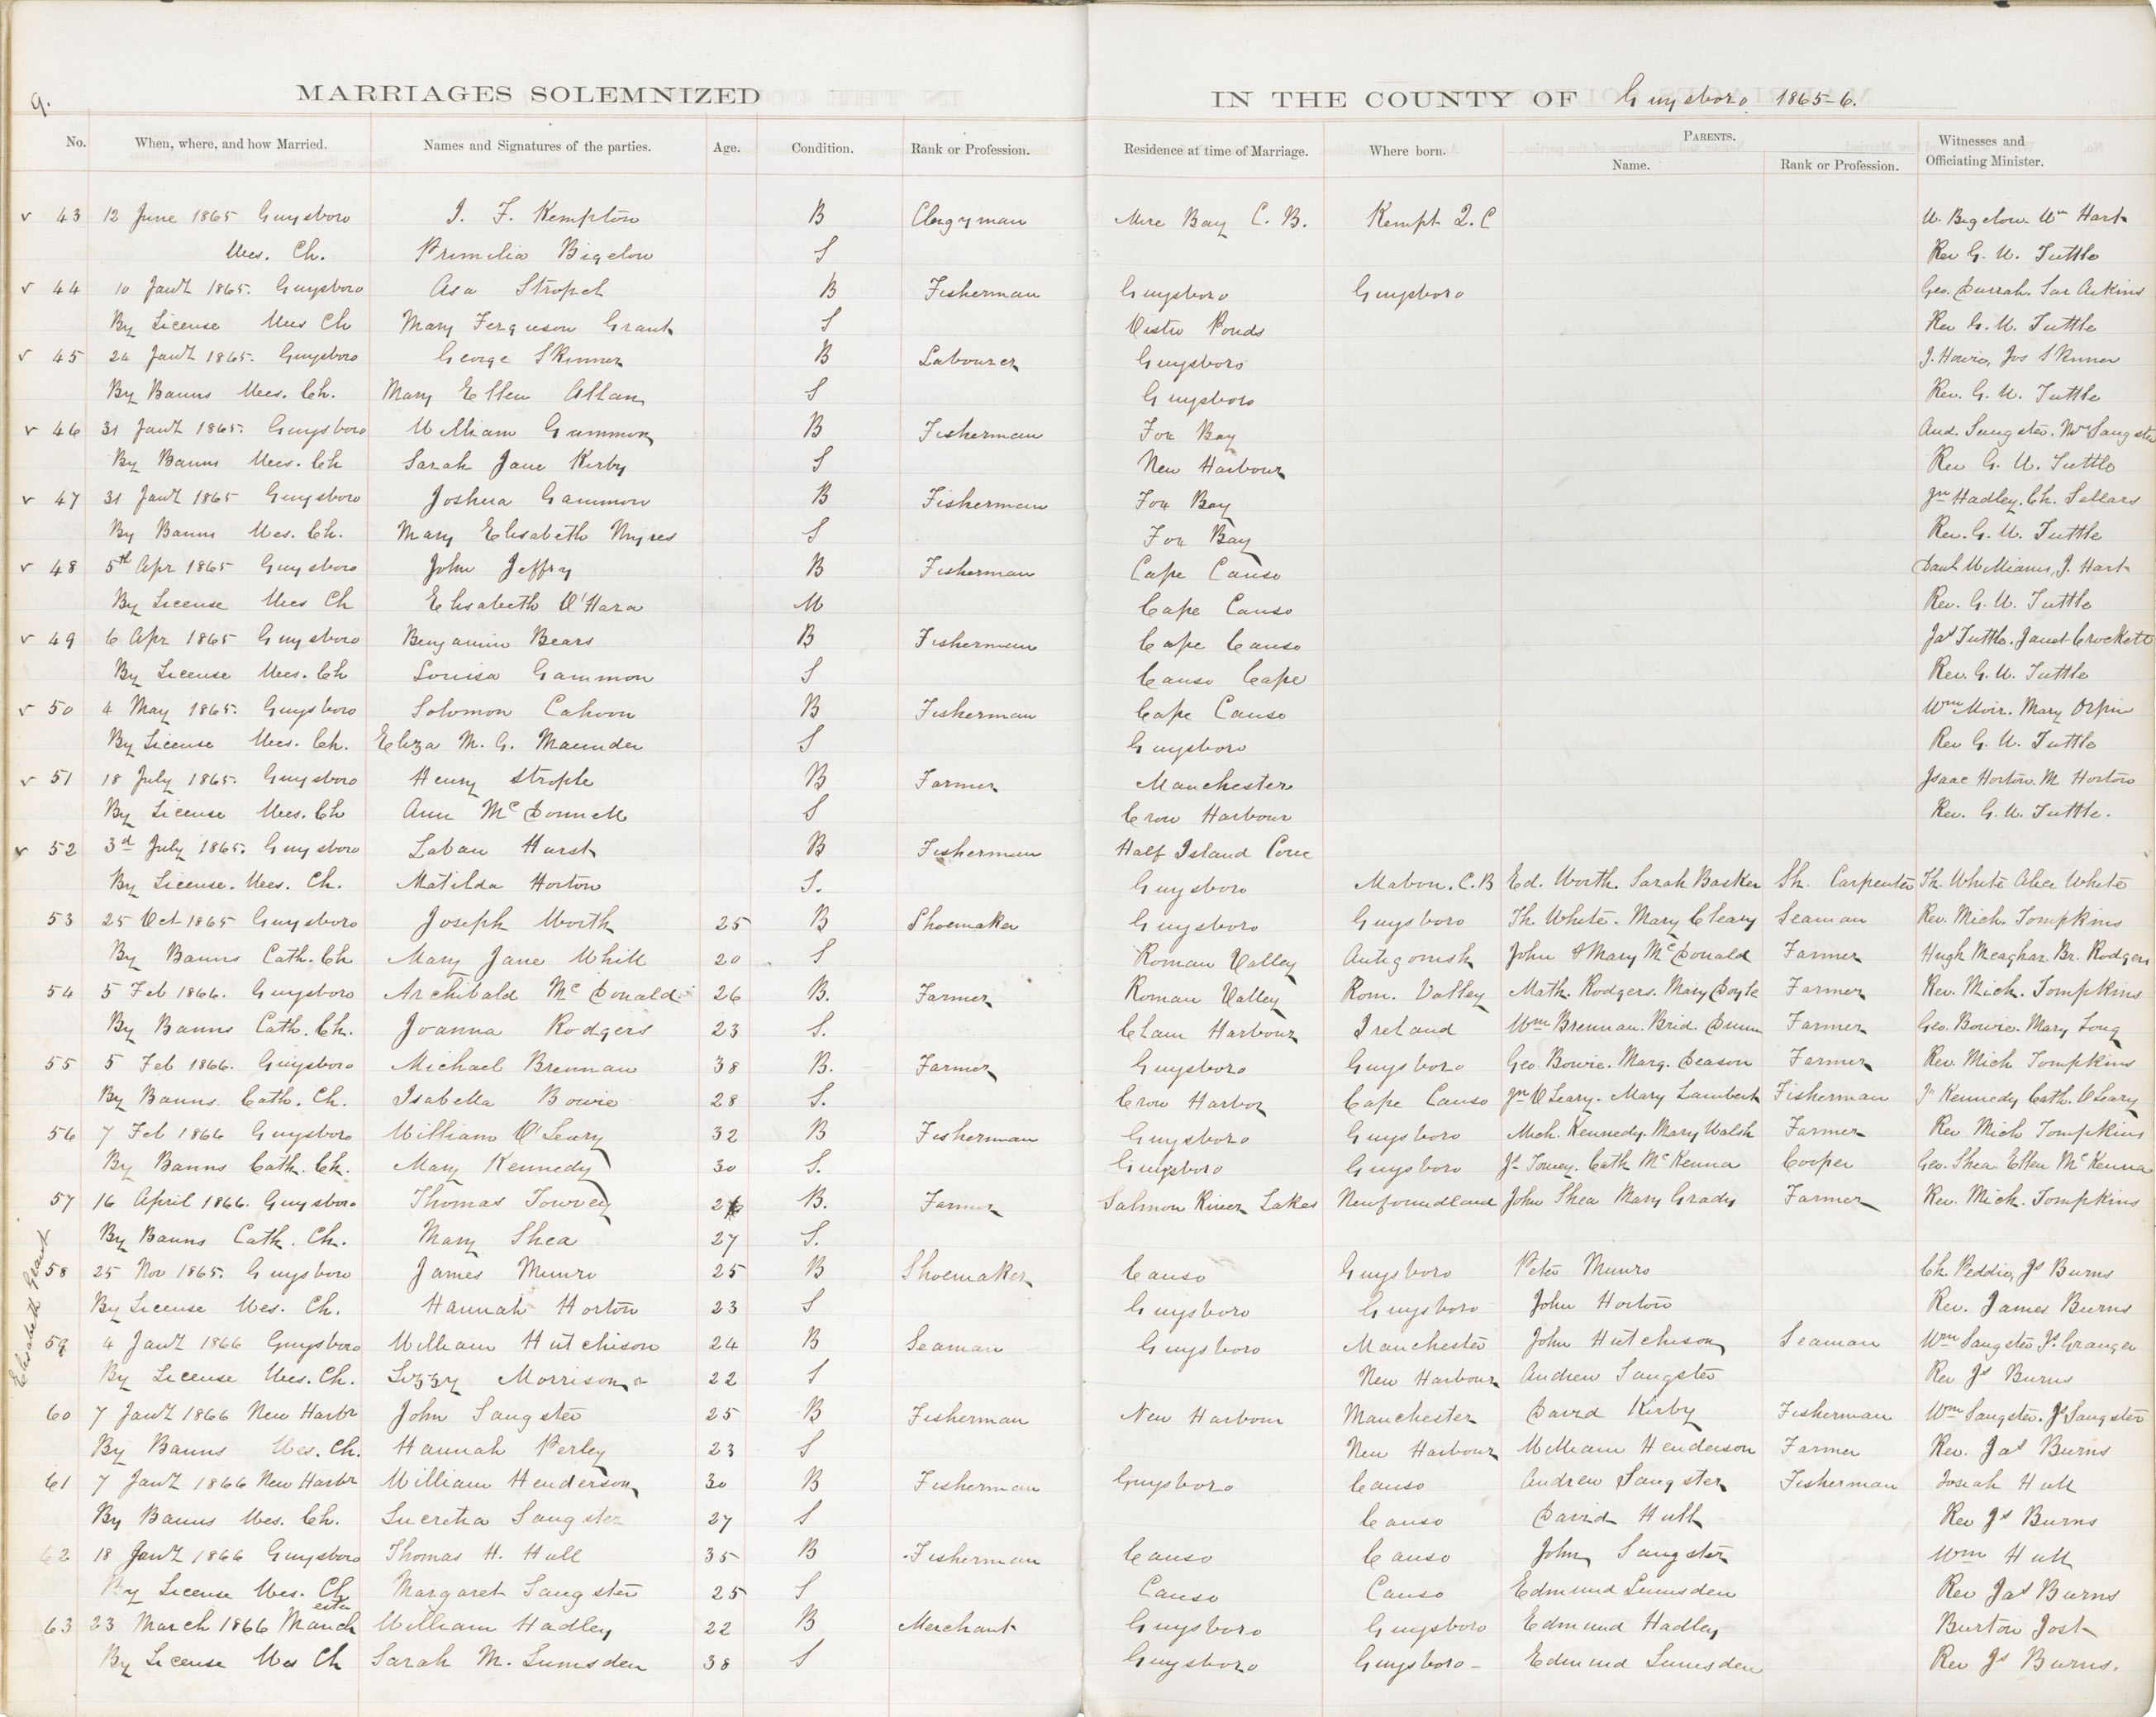 9.
MARRIAGES SOLEMNIZED IN THE COUNTY OF Guysboro 1865-6.
No. When, where, and how Married. Names and Signatures of the parties. Age. Condition. Rank or Profession. Residence at time of Marriage. Where born. PARENTS. Name. Rank or Profession. Witnesses and Officiating Minister.
v 43 12 June 1865 Guysboro J. F. Kempton B Clergyman Mire Bay C. B. Kempt Q. C W. Bigelow. Wm Hart
Wes. Ch. Primelia Bigelow S Rev G. W. Tuttle
v 44 10 Jany 1865. Guysboro Asa Stropel B Fisherman Guysboro Guysboro Geo. Durrah. Sar Aikins
By License Wes Ch Mary Ferguson Grant S Ponds Rev G. W. Tuttle
v 45 24 Jany 1865. Guysboro George Skinner B Labourer Guysboro J. Howie, Jos Skinner
By Banns Wes. Ch. Mary Ellen Allan S Guysboro Rev. G. W. Tuttle
v 46 31 Jany 1865. Guysboro William Gammon B Fisherman Fox Bay And. Sangster. Wm Sangster
By Banns Wes. Ch Sarah Jane Kirby S New Harbour Rev G. W. Tuttle
v 47 31 Jany 1865 Guysboro Joshua Gammon B Fisherman Fox Bay Jn Hadley. Ch. Sellars
By Banns Wes. Ch. Mary Elisabeth Myres S Fox Bay Rev. G. W. Tuttle
v 48 5th Apr 1865 Guysboro John Jeffry B Fisherman Cape Canso Danl Williams, J. Hart
By License Wes Ch Elisabeth O'Hara W Cape Canso Rev. G. W. Tuttle
v 49 6 Apr 1865 Guysboro Benjamin Bears B Fisherman Cape Canso Jas Tuttle. Janet Crockett
By License Wes. Ch Louisa Gammon S Canso Cape Rev. G. W. Tuttle
v 50 4 May 1865. Guysboro Solomon Cahoon B Fisherman Cape Canso Wm Moir. Mary Orpin
By License Wes. Ch. Eliza M. G. Maunder S Guysboro Rev G. W. Tuttle
v 51 18 July 1865. Guysboro Henry Strople B Farmer Manchester Isaac Horton. M Horton
By License Wes. Ch Ann McDonnell S Crow Harbour Rev. G. W. Tuttle.
v 52 3d July 1865. Guysboro Laban Hurst B Fisherman Half Island Cove
By License. Wes. Ch. Matilda Horton S. Guysboro Mabou. C.B Ed. Worth. Sarah Basker Sh. Carpenter Th. White Alice White
53 25 Oct 1865 Guysboro Joseph Worth 25 B Shoemaker Guysboro Guysboro Th. White. Mary Cleary Seaman Rev. Mich. Tompkins
By Banns Cath. Ch Mary Jane White 20 S Roman Valley Antigonish John & Mary McDonald Farmer Hugh Meaghar. Br. Rodgers
54 5 Feb 1866. Guysboro Archibald McDonald 26 B. Farmer Roman Valley Rom. Valley Math. Rodgers. Mary Doyle Farmer Rev. Mich. Tompkins
By Banns Cath. Ch. Joanna Rodgers 23 S. Clam Harbour Ireland Wm Brennan. Brid. Dunn Farmer Geo. Bowie. Mary Long
55 5 Feb 1866. Guysboro Michael Brennan 38 B. Farmer Guysboro Guysboro Geo. Bowie. Marg. Deason Farmer Rev. Mich Tompkins
By Banns. Cath. Ch. Isabella Bowie 28 S. Crow Harbor Cape Canso Jn O'Leary. Mary Lambert Fisherman Jn Kennedy Cath. O'Leary
56 7 Feb 1866 Guysboro William O'Leary 32 B Fisherman Guysboro Guysboro Mich. Kennedy. Mary Walsh Farmer Rev Mich Tompkins
By Banns Cath. Ch. Mary Kennedy 30 S. Guysboro Guysboro Js Towey. Cath McKenna Cooper Geo. Shea. Ellen McKenna
57 16 April 1866. Guysboro Thomas Towvey 26 B. Farmer Salmon River Lakes Newfoundland John Shea Mary Grady Farmer Rev. Mich. Tompkins
By Banns Cath. Ch. Mary Shea 27 S.
58 25 Nov 1865. Guysboro James Munro 25 B Shoemaker Canso Guysboro Peter Munro Ch. Peddie, Js Burns
By License Wes. Ch. Hannah Horton 23 S Guysboro Guysboro John Horton Rev. James Burns
Elisabeth Grant
59 4 Jany 1866 Guysboro William Hutchison 24 B Seaman Guysboro Manchester John Hutchison Seaman Wm Sangster Js Granger
By License Wes. Ch. Lizzy Morrison 22 S New Harbour Andrew Sangster Rev Js Burns
60 7 Jany 1866 New Harbr John Sangster 25 B Fisherman New Harbour Manchester David Kirby Fisherman Wm Sangster. Js Sangster
By Banns Wes. Ch. Hannah Perley 23 S New Harbour William Henderson Farmer Rev. Jas Burns
61 7 Jany 1866 New Harbr William Henderson 30 B Fisherman Guysboro Canso Andrew Sangster Fisherman Josiah Hull
By Banns Wes. Ch. Lucretia Sangster 27 S Canso David Hull Rev Js Burns
62 18 Jany 1866 Guysboro Thomas H. Hull 35 B Fisherman Canso Canso John Sangster Wm Hull
By License Wes. Ch Margaret Sangster 25 S Canso Canso Edmund Lumsden Rev Jas Burns
63 23 March 1866 Manchester William Hadley 22 B Merchant Guysboro Guysboro Edmund Hadley Burton Jost
By License Wes Ch Sarah M. Lumsden 38 S Guysboro Guysboro- Edmund Lumsden Rev Js Burns.